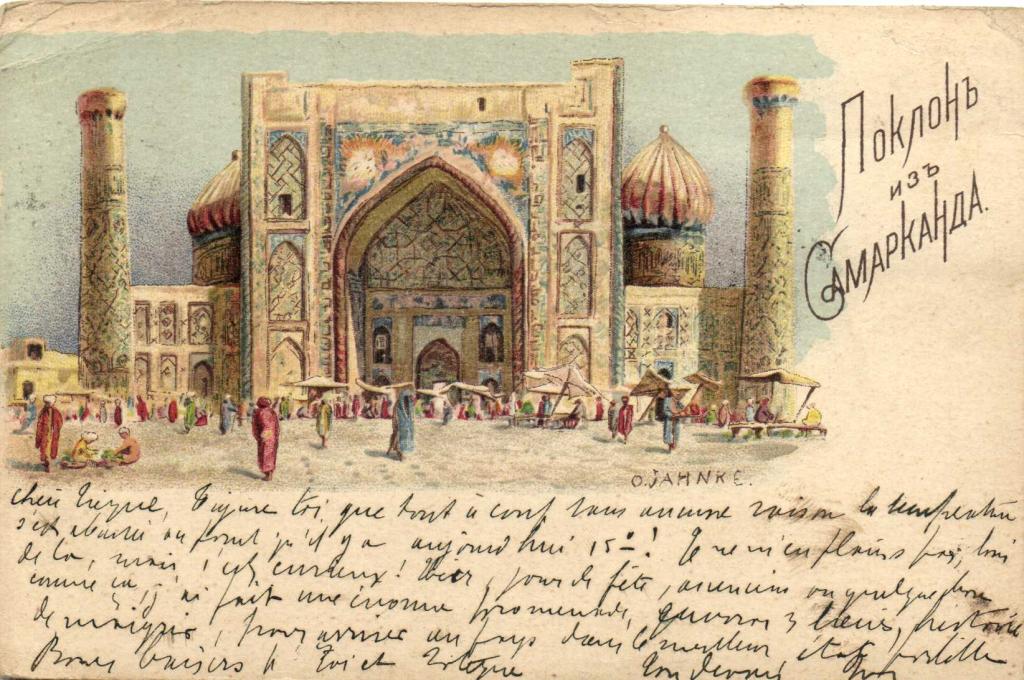 Поклонъ
изъ
Самарканда.
O. JAHNKE.
figure toi que tout à coup sans aucune raison la température
s'est abaissée au point qu'il y a aujourd'hui 15°! Je ne m'en plains pas, loin
de là, mais c'est curieux! Hier, jour de fête, ou quelque chose
comme ça, j'ai fait une énorme promenade, environ 3 lieues, histoire
de maigrir, pour arriver au pays dans le meilleur état possible
Bons baisers à toi et